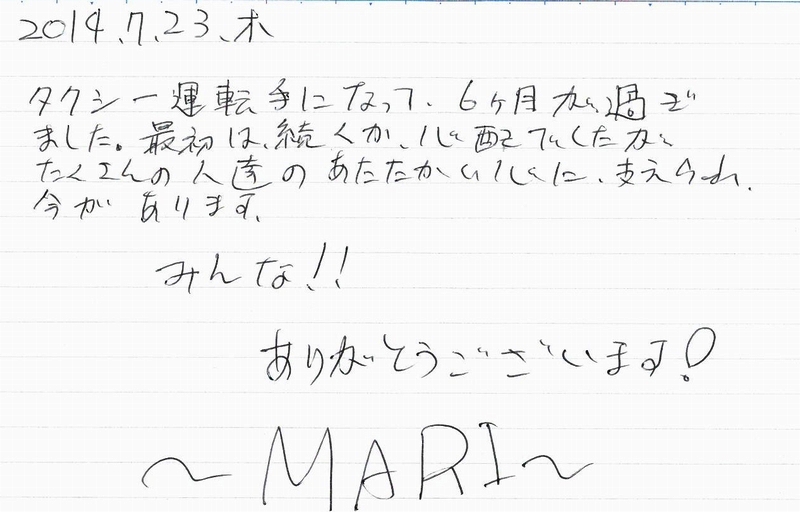 2014.7.23.木
タクシー運転手になって、6ヶ月が過ぎ
ました。最初は、続くか、心配でしたが
たくさんの人達のあたたかい心に、支えられ、
今があります。
みんな!!
ありがとうございます!
~MARI~